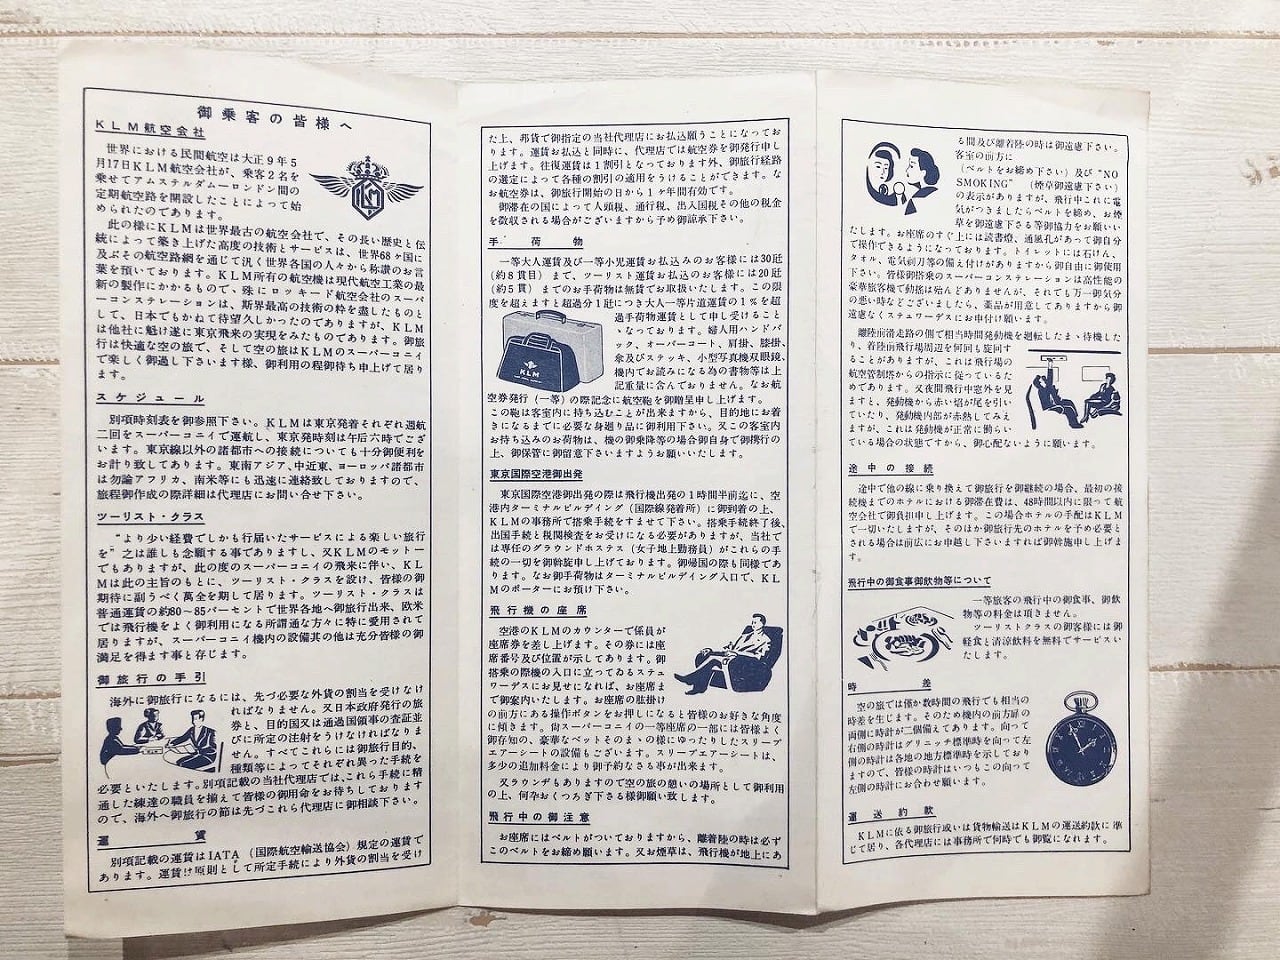 御乗客の皆様へ
KLM航空会社
世界における民間航空は大正9年5
月17日KLM航空会社が、乗客2名を
乗せてアムステルダムーロンドン間の
定期航空路を開設したことによって始
められたのであります。
KLM
此の様にKLMは世界最古の航空会社で、その長い歴史と伝
統によって築き上げた高度の技術とサービスは、世界68ヶ国に
及ぶその航空路網を通じて汎く世界各国の人々から称讃のお言
葉を頂いております。KLM所有の航空機は現代航空工業の最
新の製作にかかるもので、殊にロッキード航空会社のスーパ
ーコンステレーションは、斯界最高の技術の粋を盡したものと
して、日本でもかねて待望久しかったのでありますが、KLM
は他社に魁け遂に東京飛来の実現をみたものであります。御旅
行は快適な空の旅で、そして空の旅はKLMのスーパーコニイ
で楽しく御過し下さいます様、御利用の程御待ち申上げて居り
ます。
スケジュール
別項時刻表を御参照下さい。KLMは東京発着それぞれ週航
二回をスーパーコニイで運航し、東京発時刻は午后六時でござ
います。東京線以外の諸都市への接続についても十分御便利を
お計り致してあります。東南アジア、中近東、ヨーロッパ諸都市
は勿論アフリカ、南米等にも迅速に連絡致しておりますので、
旅程御作成の際詳細は代理店にお問い合せ下さい。
ツーリスト・クラス
“より少い経費でしかも行届いたサービスによる楽しい旅行
を”之は誰しも念願する事でありますし、又KLMのモットー
でもありますが、此の度のスーパーコニイの飛来に伴い、KL
Mは此の主旨のもとに、ツーリスト・クラスを設け、皆様の御
期待に副うべく萬全を期して居ります。ツーリスト・クラスは
普通運賃の約80～85パーセントで世界各地へ御旅行出来、欧米
では飛行機をよく御利用になる所謂通な方々に特に愛用されて
居りますが、スーパーコニイ機内の設備其の他は充分皆様の御
満足を得ます事と存じます。
御旅行の手引
海外に御旅行になるには、先づ必要な外貨の割当を受けなけ
ればなりません。又日本政府発行の旅
券と、目的国又は通過国領事の査証並
びに所定の注射をうけなければなりま
せん。すべてこれらには御旅行目的、
種類等によってそれぞれ異った手続を
必要といたします。別項記載の当社代理店では、これら手続に精
通した練達の職員を揃えて皆様の御用命をお待ちしております
ので、海外へ御旅行の節は先づこれら代理店に御相談下さい。
運賃
別項記載の運賃はIATA（国際航空輸送協会）規定の運賃で
あります。運賃は原則として所定手続により外貨の割当を受け
た上、邦貨で御指定の当社代理店にお払込願うことになってお
ります。運賃お払込と同時に、代理店では航空券を御発行申し
上げます。往復運賃は1割引となっております外、御旅行経路
の選定によって各種の割引の適用をうけることができます。な
お航空券は、御旅行開始の日から1ヶ年間有効です。
御滞在の国によって人頭税、通行税、出入国税その他の税金
を徴収される場合がございますから予め御諒承下さい。
手荷物
一等大人運賃及び一等小児運賃お払込みのお客様には30瓩
（約8貫目）まで、ツーリスト運賃お払込のお客様には20瓩
（約5貫）までのお手荷物は無賃でお取扱いたします。この限
度を超えますと超過分1瓩につき大人一等片道運賃の1％を超
過手荷物運賃として申し受けること
ゝなっております。婦人用ハンドバ
ック、オーバーコート、肩掛、膝掛、
傘及びステッキ、小型写真機双眼鏡、
機内でお読みになる為の書物等は上
記重量に含んでおりません。なお航
KLM
空券発行（一等）の際記念に航空鞄を御贈呈申し上げます。
この鞄は客室内に持ち込むことが出来ますから、目的地にお着
きになるまでに必要な身廻り品に御利用下さい。又この客室内
お持ち込みのお荷物は、機の御乗降等の場合御自身で御携行の
上、御保管に御留意下さいますようお願いいたします。
東京国際空港御出発
東京国際空港御出発の際は飛行機出発の1時間半前迄に、空
港内ターミナルビルディング（国際線発着所）に御到着の上、
KLMの事務所で搭乗手続をすませて下さい。搭乗手続終了後、
出国手続と税関検査をお受けになる必要がありますが、当社で
は専任のグラウンドホステス（女子地上勤務員）がこれらの手
続の一切を御斡旋申し上げております。御帰国の際も同様であ
ります。なお御手荷物はターミナルビルディング入口で、KL
Mのポーターにお預け下さい。
飛行機の座席
空港のKLMのカウンターで係員が
座席券を差し上げます。その券には座
席番号及び位置が示してあります。御
搭乗の際機の入口に立ってゐるスチュ
ワーデスにお見せになれば、お座席ま
で御案内いたします。お座席の肱掛け
の前方にある操作ボタンをお押しになると皆様のお好きな角度
に傾きます。尙スーパーコニイの一等座席の一部には皆様よく
御存知の、豪華なベットそのまゝの様にゆったりしたスリープ
エアーシートの設備もございます。スリープエアーシートは、
多少の追加料金により御予約なさる事が出来ます。
又ラウンヂもありますので空の旅の憩いの場所として御利用
の上、何卒おくつろぎ下さる様御願い致します。
飛行中の御注意
お座席にはベルトがついておりますから、離着陸の時は必ず
このベルトをお締め願います。又お煙草は、飛行機が地上にあ
る間及び離着陸の時は御遠慮下さい。
客室の前方に
（ベルトをお締め下さい）及び“NO
SMOKING”（煙草御遠慮下さい）
の表示がありますが、飛行中これに電
気がつきましたらベルトを締め、お煙
草を御遠慮下さる等御協力をお願いい
たします。お座席のすぐ上には読書燈、通風孔があって御自分
で操作できるようになっております。トイレットには石けん、
タオル、電気剃刀等の備え付けがありますから御自由に御使用
下さい。皆様御搭乗のスーパーコンステレーションは高性能の
豪華旅客機で動揺は殆んどありませんが、それでも万一御気分
の悪い時などございましたら、薬品が用意してありますから御
遠慮なくスチュワーデスにお申付け願います。
離陸前滑走路の側で相当時間発動機を廻転したまゝ待機した
り、着陸前飛行場周辺を何回も旋回す
ることがありますが、これは飛行場の
航空管制塔からの指示に従っているた
めであります。又夜間飛行中窓外を見
ますと、発動機から赤い焰が尾を引い
ていたり、発動機内部が赤熱してみえ
ますが、これは発動機が正常に働らい
ている場合の状態ですから、御心配ないように願います。
途中の接続
途中で他の線に乗り換えて御旅行を御継続の場合、最初の接
続機までのホテルにおける御滞在費は、48時間以内に限って航
空会社で御負担申し上げます。この場合ホテルの手配はKLM
で一切いたしますが、そのほか御旅行先のホテルを予め必要と
される場合は前広にお申越し下さいますれば御斡施申し上げま
す。
飛行中の御食事御飲物等について
一等旅客の飛行中の御食事、御飲
物等の料金は頂きません。
ツーリストクラスの御客様には御
軽食と清涼飲料を無料でサービスい
たします。
時差
空の旅では僅か数時間の飛行でも相当の
時差を生じます。そのため機内の前方扉の
両側に時計が二個備えてあります。向って
右側の時計はグリニッチ標準時を向って左
側の時計は各地の地方標準時を示しており
ますので、皆様の時計はいつもこの向って
左側の時計にお合わせ願います。
運送約款
KLMに依る御旅行或いは貨物輸送はKLMの運送約款に準
じて居り、各代理店には事務所で何時でも御覧になれます。